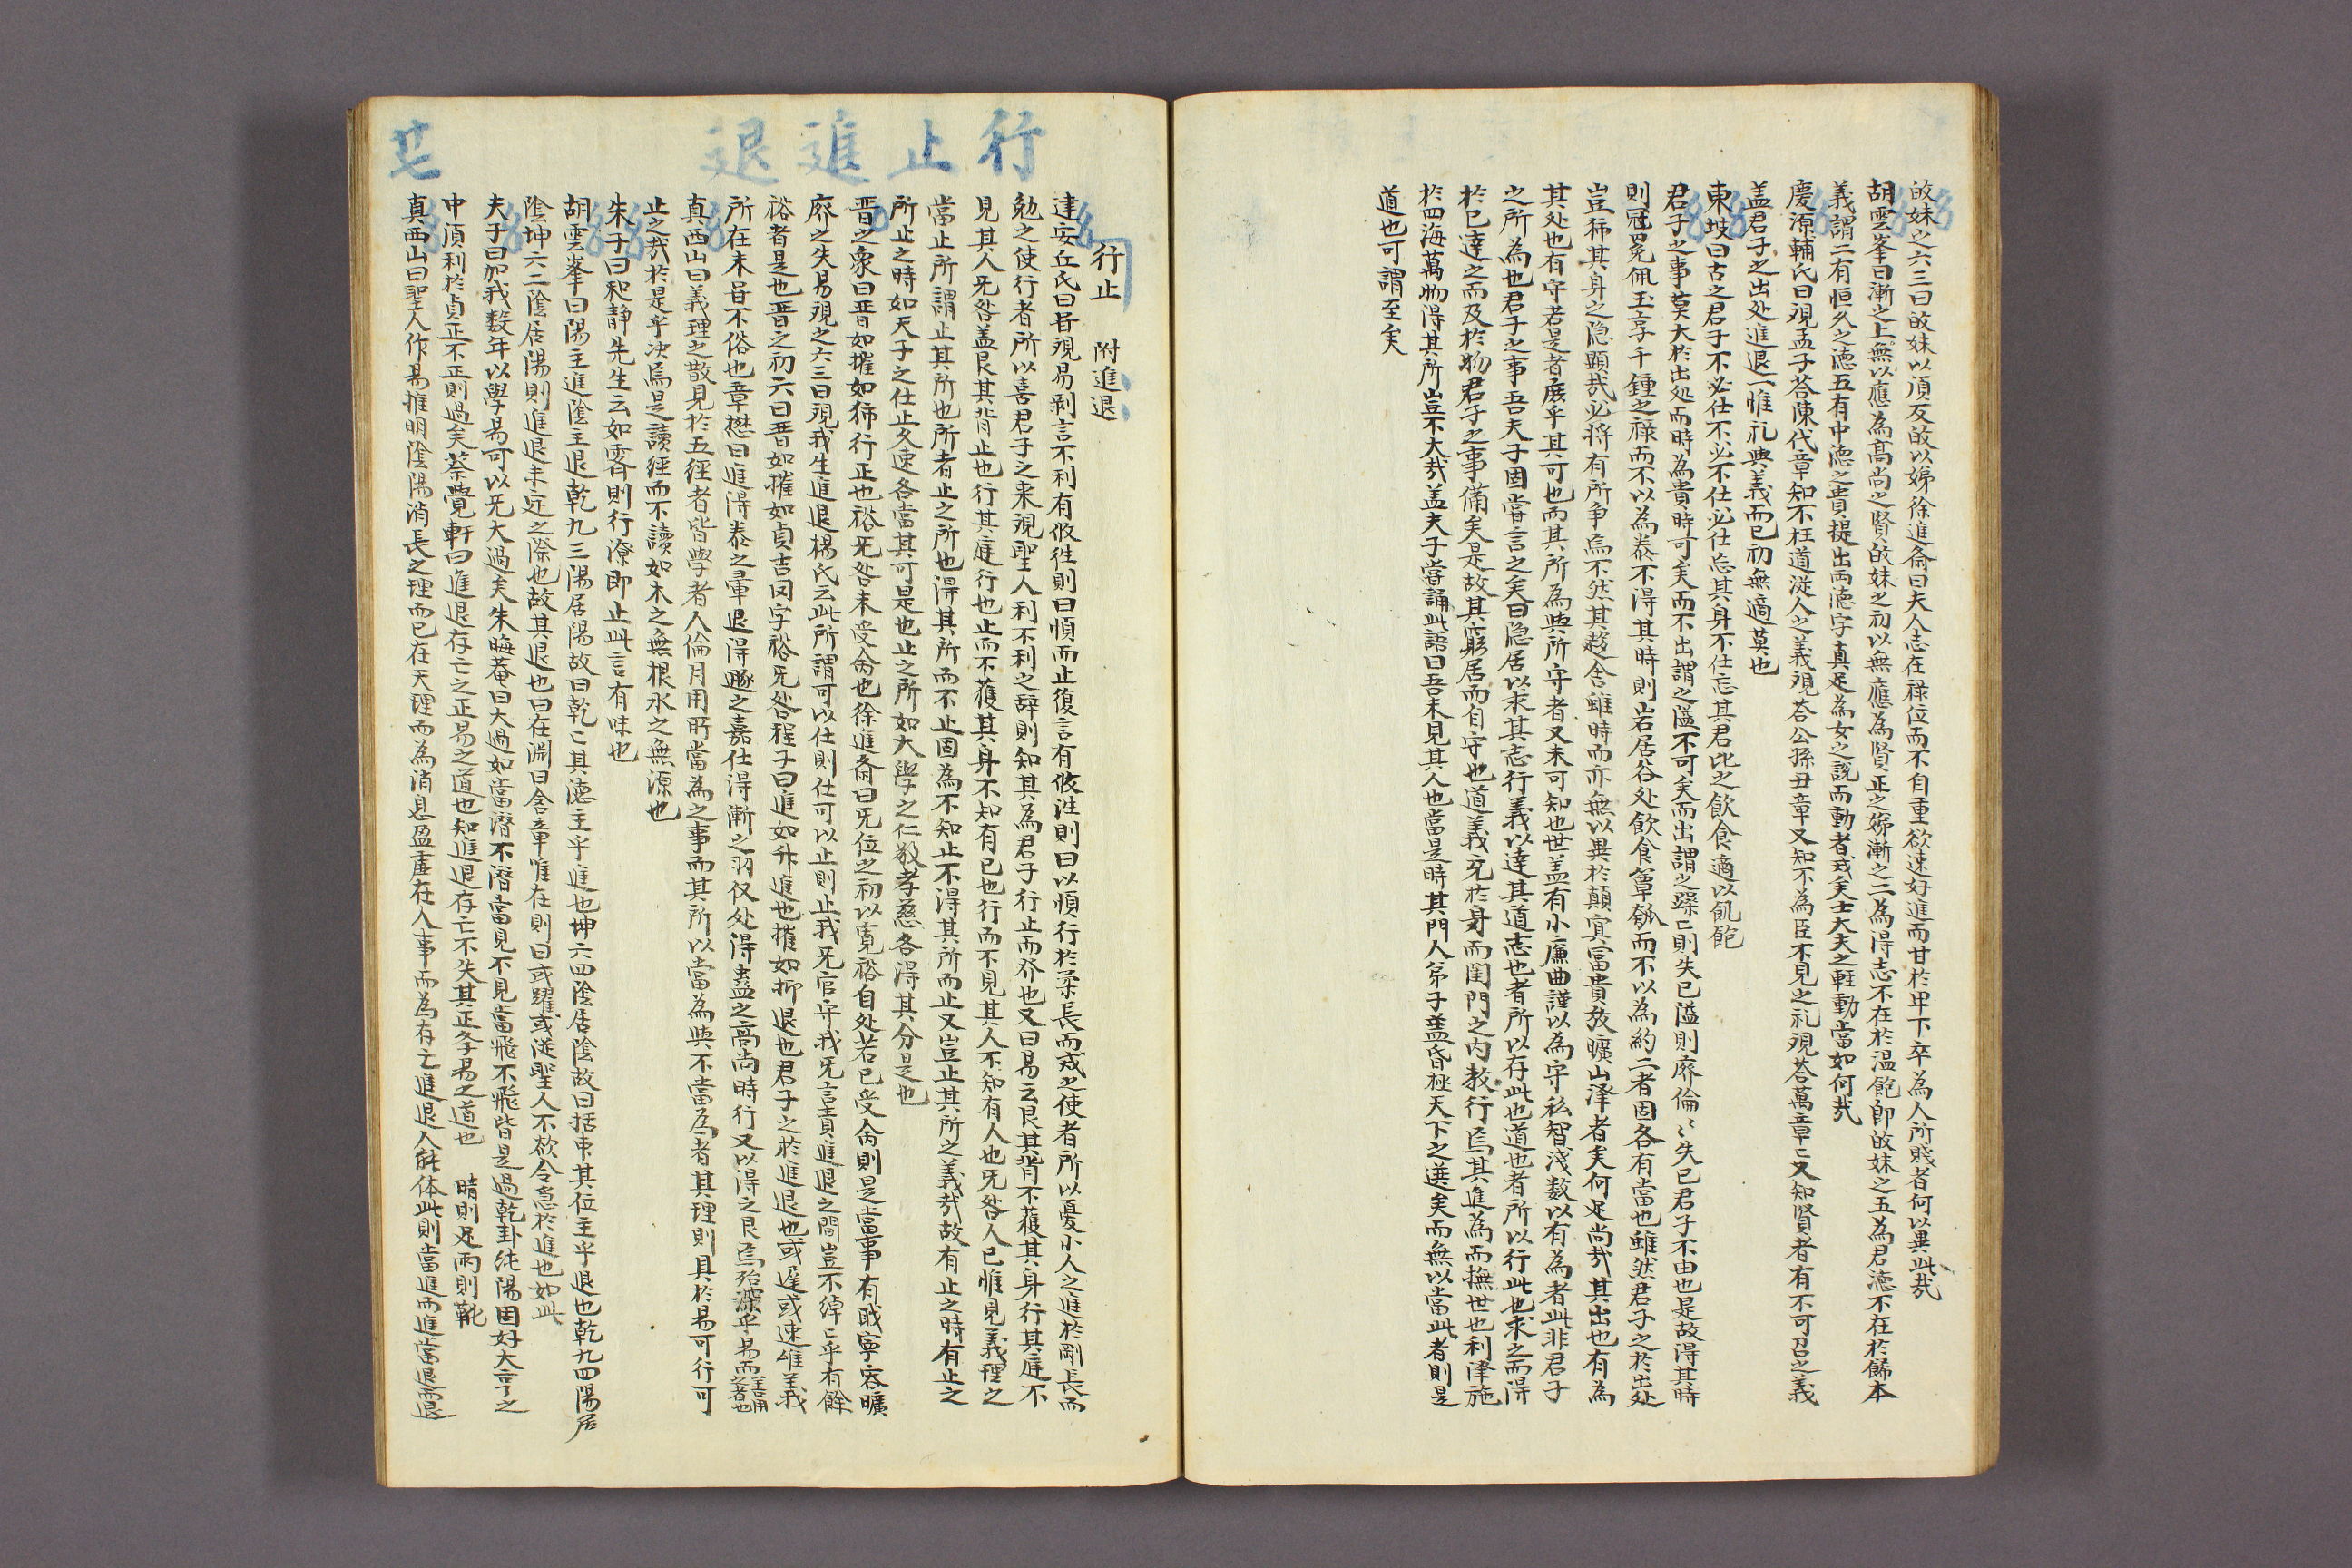 故妹之六三曰故妹以須反故以娣徐進斎曰夫人志在祿位而不自重欲速好進而甘於卑下卒為人所賤者何以異此㢤
胡雲峯曰漸之上無以應為高尚之賢故妹之初以無應為賢正之娣漸之二為得志不在於温飽即故妹之五為君德不在於餙本
義謂二有恒久之德五有中德之貴提出両德字真足為女之說而動者戒矣士大夫之軽動當如何㢤
慶源輔氏曰覌孟子荅陳代章知不枉道従人之義覌荅公孫丑章又知不為臣不見之礼覌荅萬章〻又知賢者有不可召之義
盖君子之出处進退一惟礼與義而已初無適莫也
東坡曰古之君子不必仕不必不仕必仕忘其身不仕忘其君比之飲食適以飢飽
君子之事莫大於出処而時為貴時可矣而不出謂之隘不可矣而出謂之躁〻則失已隘則廃倫〻失已君子不由也是故得其時
則冠冕佩玉享千鍾之祿而不以為泰不得其時則岩居谷处飲食簞瓢而不以為約二者固各有當也雖然君子之於出处
豈徒其身之隐顕㢤必将有所争焉不然其趍舎雖時而亦無以異於顛冥富貴放曠山澤者矣何足尚㢤其出也有為
其处也有守若是者庶乎其可也而其所為與所守者又未可知也世盖有小廉曲謹以為守私智浅数以有為者此非君子
之所為也君子之事吾夫子固甞言之矣曰隐居以求其志行義以達其道志也者所以存此也道也者所以行此也求之而得
於已達之而及於物君子之事備矣是故其窮居而自守也道義充於身而閨門之内教行焉其進為而撫世也利澤施
於四海萬物得其所豈不大㢤盖夫子甞誦此語曰吾未見其人也當是時其門人弟子盖昏極天下之選矣而無以當此者則是
道也可謂至矣
行止進退
廿七
行止　附進退
建安丘氏曰昔覌易剥言不利有攸徃則曰順而止復言有攸徃則曰以順行於柔長而戒之使者所以憂小人之進於剛長而
勉之使行者所以喜君子之来覌聖人利不利之辞則知其為君子行止而発也又曰易云艮其背不獲其身行其庭不
見其人旡咎盖艮其背止也行其庭行也止而不獲其身不知有已也行而不見其人不知有人也旡咎人已惟見義理之
當止所謂止其所也所者止之所也得其所而不止固為不知止不得其所而止又豈止其所之義㢤故有止之時有止之
所止之時如夫子之仕止久速各當其可是也止之所如大學之仁敬孝慈各得其分是也
晋之象曰晋如摧如獨行正也裕旡咎未受命也徐進斎曰旡位之初以寛裕自处若已受命則是當事有職寧容曠
廃之失易覌之六三曰覌我生進退楊氏云此所謂可以仕則仕可以止則止我旡官守我旡言責進退之間豈不綽〻乎有餘
裕者是也晋之初六曰晋如摧如貞吉罔孚裕旡咎程子曰進如升進也摧如抑退也君子之於進退也或遅或速唯義
所在未甞不俗也章懋曰進得泰之彙退得遯之嘉仕得漸之羽仪处得蠱之高尚時行又以得之艮焉殆深乎易而善用之者也
真西山曰義理之散見於五經者皆學者人倫月用所當為之事而其所以當為與不當為者其理則具於易可行可
止之㢤於是乎决焉是讀經而不讀如木之無根水之無源也
朱子曰和靜先生云如霽則行潦即止此言有味也
胡雲峯曰陽主進陰主退乾九三陽居陽故曰乾〻其德主乎進也坤六四陰居陰故曰括囊其位主乎退也乾九四陽居
陰坤六二陰居陽則進退未定之際也故其退也曰在淵曰含章唯在則曰或躍或従聖人不欲令急於進也如此
夫子曰加我数年以學易可以旡大過矣朱晦菴曰大過如當潜不潜當見不見當飛不飛皆是過乾卦純陽固好大亨之
中須利於貞正不正則過矣蔡覺軒曰進退存亡之正易之道也知進退存亡不失其正斈易之道也　晴則足雨則靴
真西山曰聖人作易推明陰陽消長之理而已在天理而為消息盈虛在人事而為存亡進退人能体此則當進而進當退而退